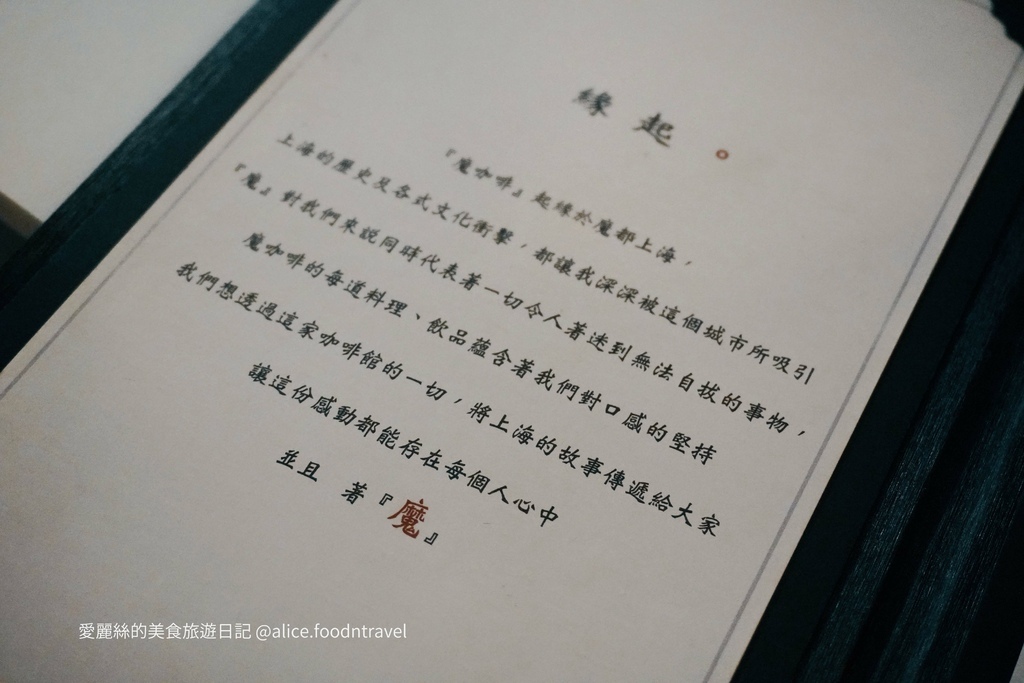 緣起。
『魔咖啡』起緣於魔都上海，
上海的歷史及各式文化衝擊，都讓我深深被這個城市所吸引
『魔』對我們來說同時代表著一切令人著迷到無法自拔的事物，
魔咖啡的每道料理、飲品蘊含著我們對口感的堅持
我們想透過這家咖啡館的一切，將上海的故事傳遞給大家
讓這份感動都能存在每個人心中
並且 著『魔』
愛麗絲的美食旅遊日記 @alice.foodntravel